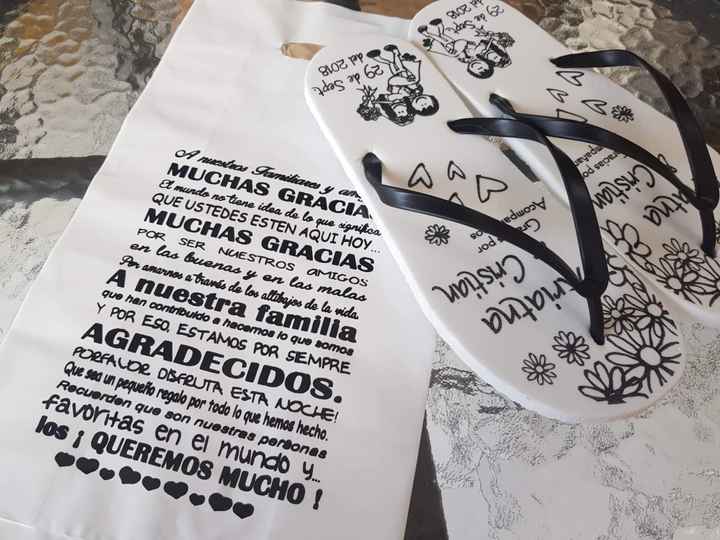 A nuestros Familiares y
MUCHAS GRACIA
El mundo no tiene idea de lo que significa
QUE USTEDES ESTEN AQUI HOY...
MUCHAS GRACIAS
POR SER NUESTROS AMIGOS
en las buenas y en las malas
Por amarnos a través de los altibajos de la vida
A nuestra familia
que han contribuido a hacernos lo que somos
Y POR ESO, ESTAMOS POR SIEMPRE
AGRADECIDOS.
PORFAVOR DISFRUTA ESTA NOCHE!
Que sea un pequeño regalo por todo lo que hemos hecho.
Recuerden que son nuestras personas
favoritas en el mundo y...
los ¡ QUEREMOS MUCHO !
29 de Sept
del 2018
Gracias por
Acompa
Cristian
29 de Sept
del 2018
Gracias por
Cristian